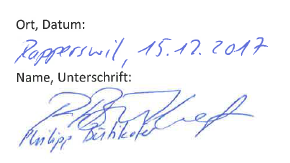 Ort, Datum:
Rapperswil, 15.12.2017
Name, Unterschrift:
Philipp